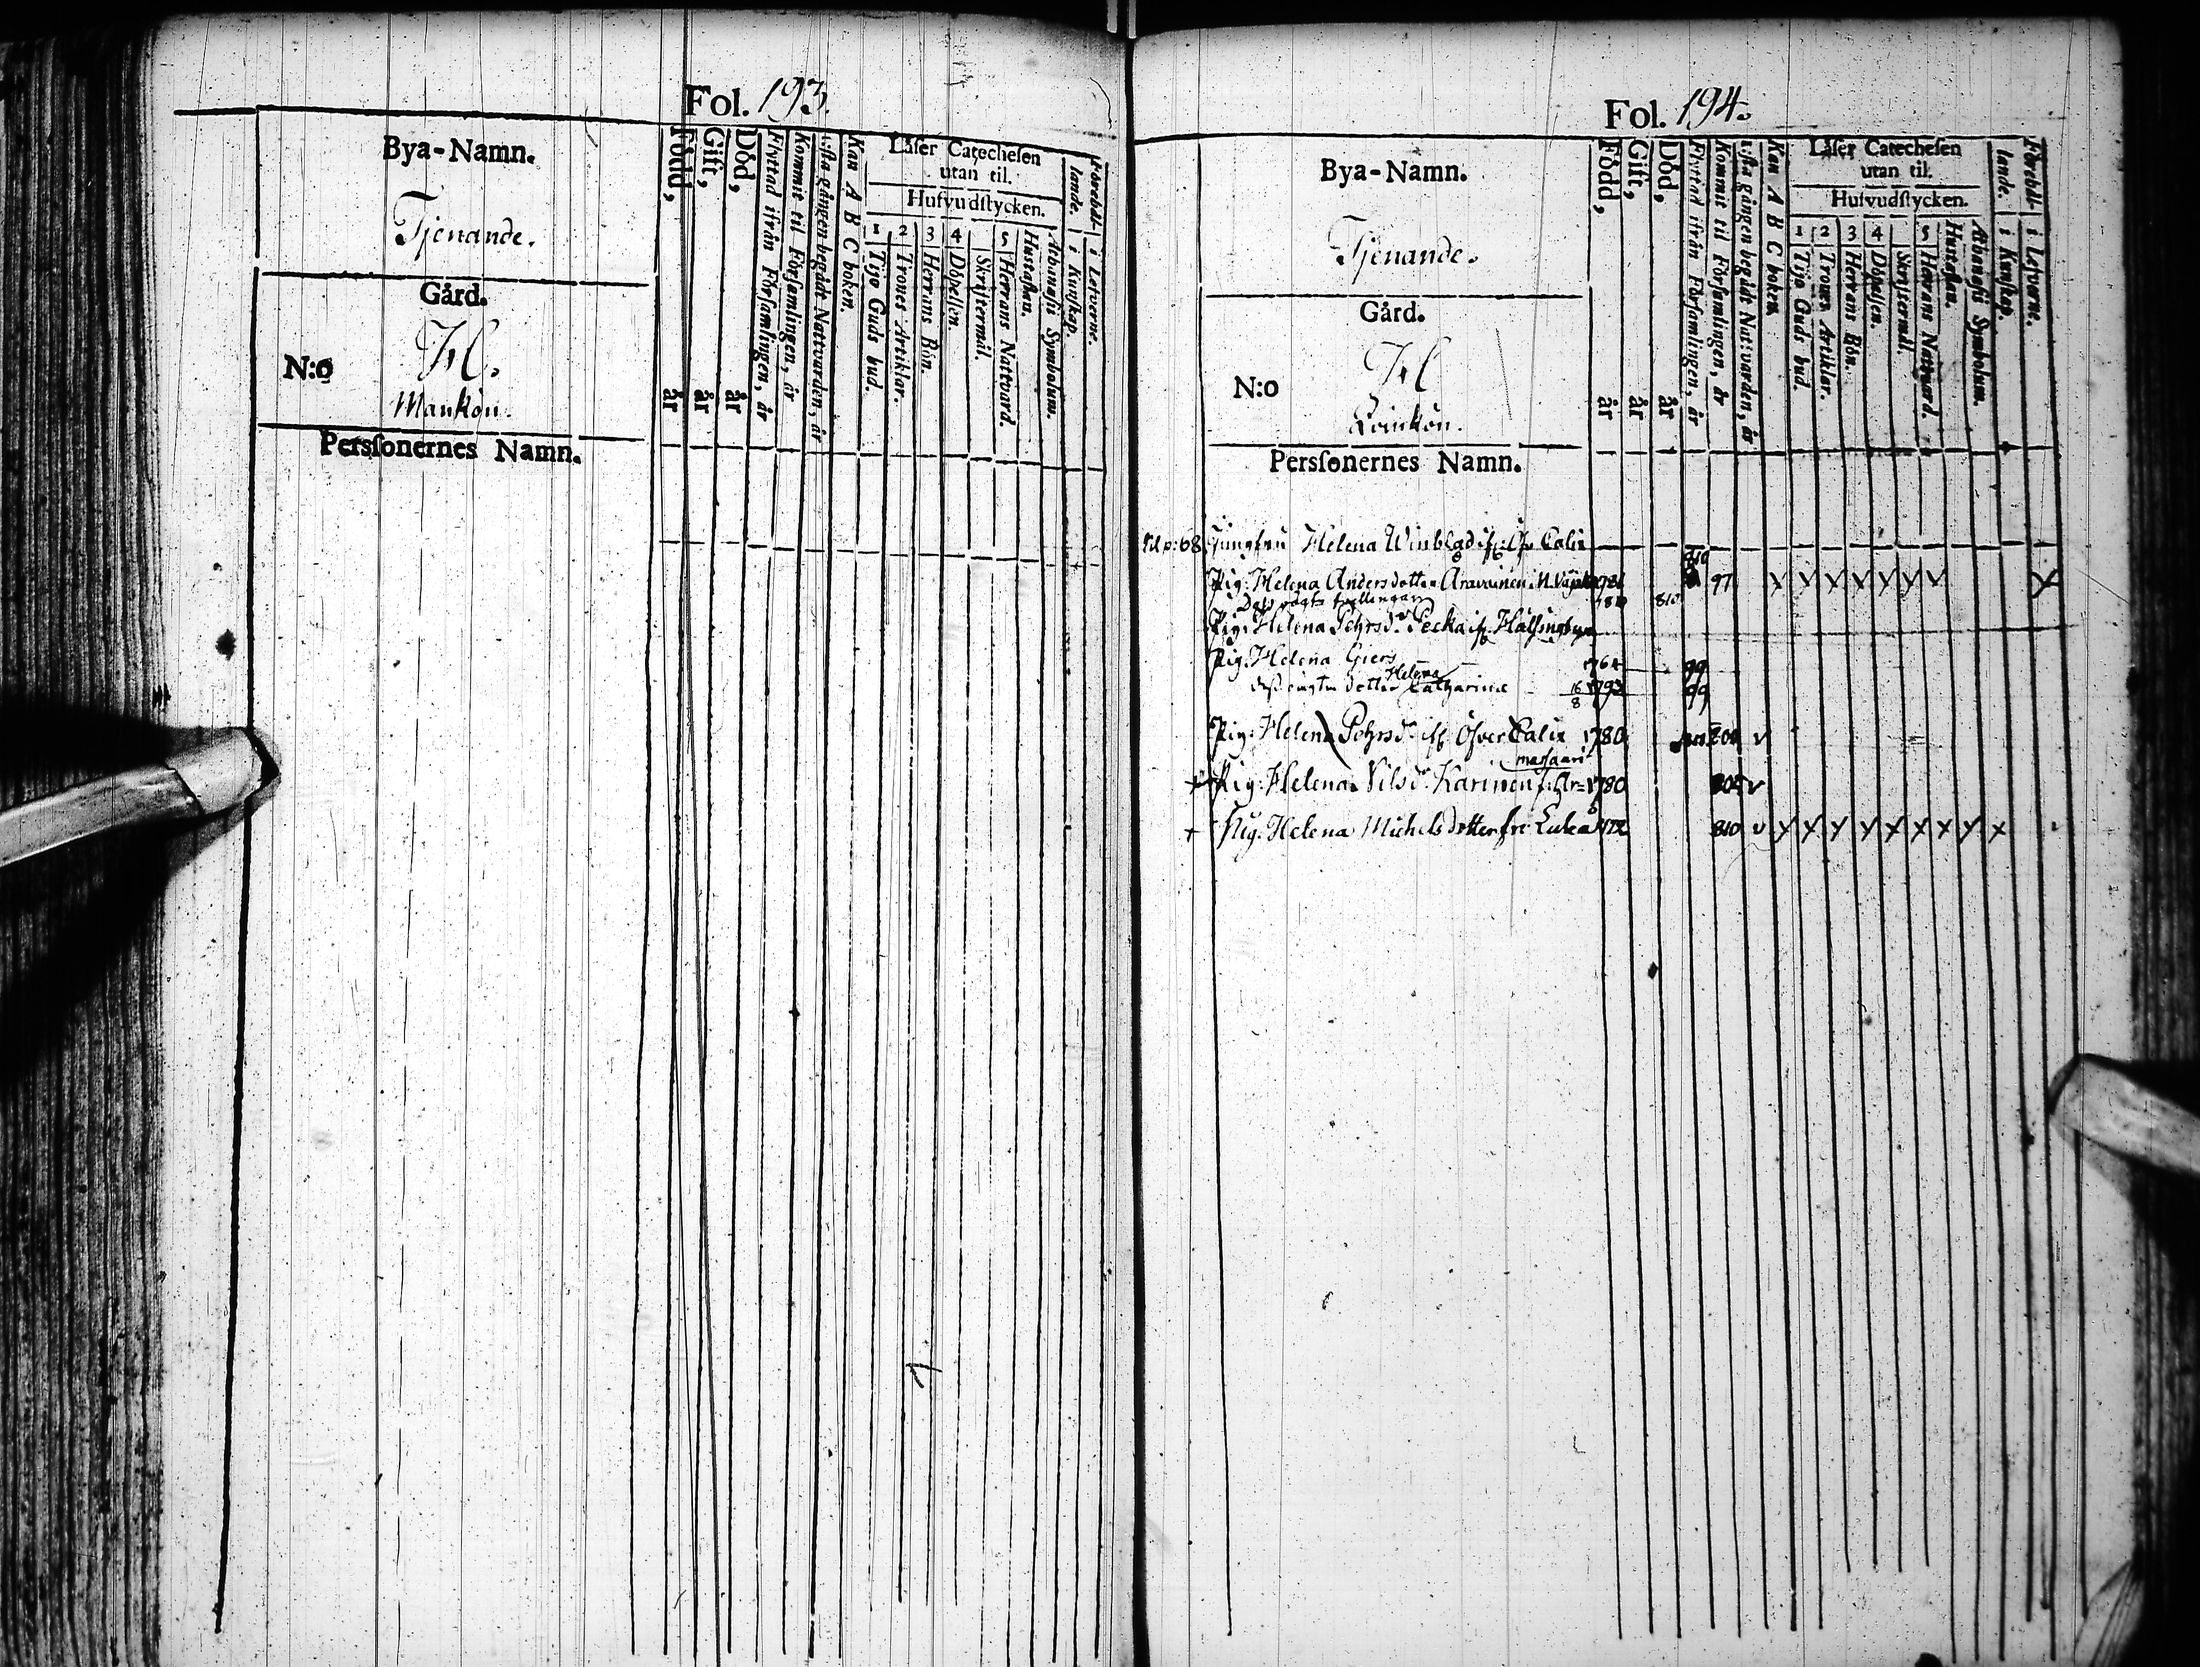 Fol. 193.
Bya-Namn.
Tjenande.
Gård.
N:o
H.
Mankön.
Persſonernes Namn.
Född, år
Gift, år
Död, år
Flyttad ifrån Förſamlingen, år
Kommit til Förſamlingen, år
1:ſta gången begådt Nattvarden, år
Kan A B C boken.
Läſer Catecheſen
utan til.
Hufvudſtycken.
1 Tijo Guds bud.
2 Trones Artiklar.
3 Herrans Bön.
4 Döpelſen.
Skriftermål.
5 Herrans Nattvard.
Huſtaflan.
Athanaſii Symbolum.
Förehål-
lande.
i Kunſkap.
i Lefverne.
Fol. 194.
Bya-Namn.
Tjenande.
Gård.
N:o
H
Qvinkön.
Persſonernes Namn.
Född, år
Gift, år
Död, år
Flyttad ifrån Förſamlingen, år
Kommit til Förſamlingen, år
1:ſta gången begådt Nattvarden, år
Kan A B C boken.
Läſer Catecheſen
utan til.
Hufvudſtycken.
1 Tijo Guds bud.
2 Trones Artiklar.
3 Herrans Bön.
4 Döpelſen.
Skriftermål.
5 Herrans Nattvard.
Huſtaflan.
Athanaſii Symbolum.
Förehål-
lande.
i Kunſkap.
i Lefverne.
p: 68 Jungfru Helena Winblad if: Öfv Calix
Pig. Helena Andersdotter Aravainen 97
810
Pig. Helena Pehrsdr Pecka if. Hälſingbyn
Pig. Helena Giers 1764 99
Helena
dotter Catharina 16/8 1793 99
Pig. Helena Pehrsdr if. Öfver Calix 1780 v
Pig. Helena Nilsdr Karinen 1780 v
Pig. Helena Michelsdotter fr: Luleå 810 v